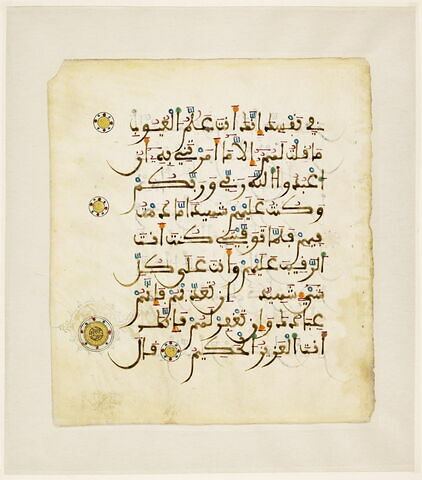 في نفسك انك انت علم الغيوب
ما قلت لهم الا ما امرتني به ان
اعبدوا الله ربي وربكم
وكنت عليهم شهيدا ما دمت
فيهم فلما توفيتني كنت انت
الرقيب عليهم وانت على كل
شيء شهيد ان تعذبهم فانهم
عبادك وان تغفر لهم فانك
انت العزيز الحكيم قال